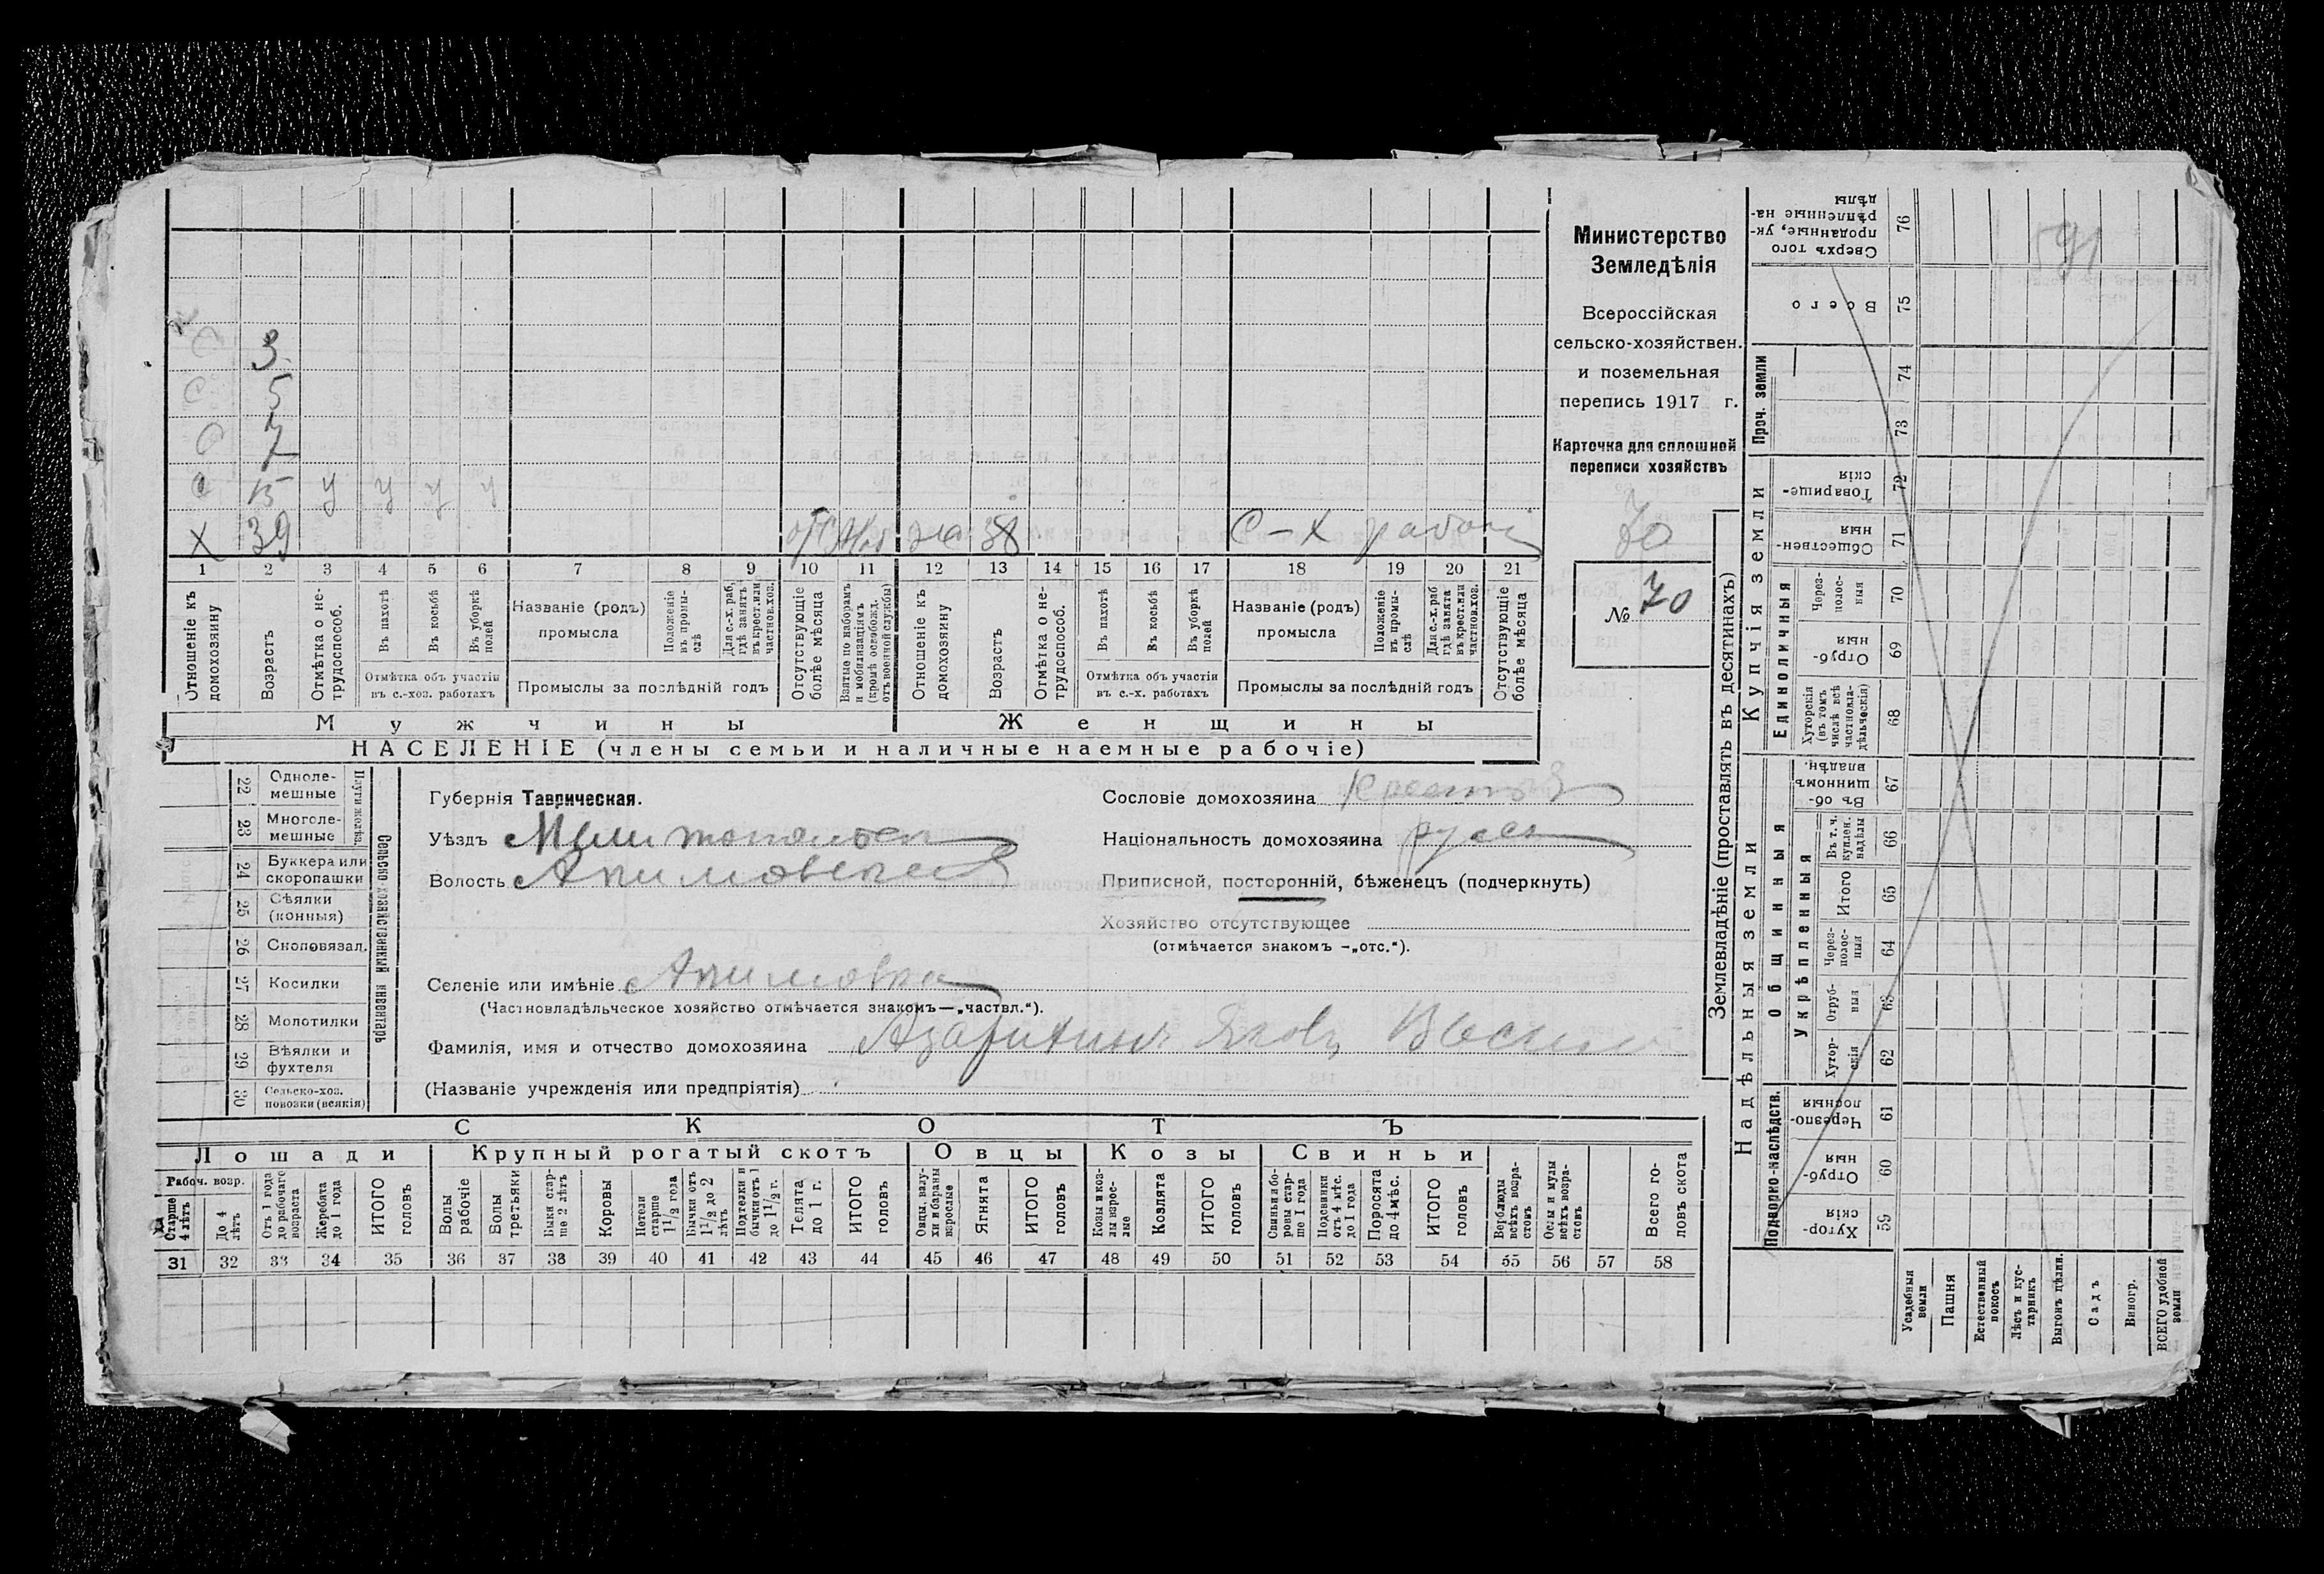 591
3
5
7
С 15 у у у у
Х 39 отс жо 38 С-Х работ
1 2 3 4 5 6 7 8 9 10 11 12 13 14 15 16 17 18 19 20 21
Отношеніе къ домохозяину
Возрастъ
Отмѣтка о не-
трудоспособ.
Въ пахотѣ
Въ косьбѣ
Въ уборкѣ полей
Отмѣтка объ участіи
въ с.-хоз. работахъ
Названіе (родъ)
промысла
Положеніе въ промы-
слѣ
Для с.-х. раб.
гдѣ занятъ
въ крест. или
частнов. хоз.
Промыслы за послѣдній годъ
Отсутствующіе
болѣе мѣсяца
Взятые по наборамъ
и мобилизаціямъ
(кромѣ освобожд.
отъ военной службы)
Отношеніе къ
домохозяину
Возрастъ
Отмѣтка о не-
трудоспособ.
Въ пахотѣ
Въ косьбѣ
Въ уборкѣ
полей
Отмѣтка объ участіи
въ с.-х. работахъ
Названіе (родъ)
промысла
Положеніе
въ промы-
слѣ
Для с.-х. раб
гдѣ занята
въ крест. или
частнов. хоз.
Промыслы за послѣдній годъ
Отсутствующіе
болѣе мѣсяца
Мужчины Женщины
НАСЕЛЕНІЕ (члены семьи и наличные наемные рабочіе)
Министерство
Земледѣлія
Всероссійская
сельско-хозяйствен.
и поземельная
перепись 1917 г.
Карточка для сплошной
переписи хозяйствъ
70
№ 70
Сельско-хозяйственный инвентарь
Плуги желѣз.
22 Одноле-
мешные
23 Многоле-
мешные
24 Буккера или
скоропашки
25 Сѣялки
(конныя)
26 Сноповязал.
27 Косилки
28 Молотилки
29 Вѣялки и
фухтеля
30 Сельско-хоз.
повозки (всякія)
Губернія Таврическая.
Уѣздъ Мелитопольск
Волость Акимовская
Сословіе домохозяина Крестьян
Національность домохозяина русск
Приписной, посторонній, бѣженецъ (подчеркнуть)
Хозяйство отсутствующее
(отмѣчается знакомъ -„отс.“).
Селеніе или имѣніе Акимовка
(Частновладѣльческое хозяйство отмѣчается знакомъ—„частвл.“).
Фамилія, имя и отчество домохозяина Азарихинъ Яковъ
(Названіе учрежденія или предпріятія)
СКОТЪ
Лошади Крупный рогатый скотъ Овцы Козы Свиньи
Рабоч. возр.
Старше
4 лѣтъ
До 4
лѣтъ
Отъ 1 года
до рабочаго
возраста
Жеребята
до 1 года
ИТОГО
головъ
Волы
рабочіе
Волы
третьяки
Быки стар-
ше 2 лѣтъ
Коровы
Нетели
старше
1 1/2 года
Бычки отъ
1 1/2 до 2
лѣтъ
Подтелки и
бычки отъ 1
до 1 1/2 г.
Телята
до 1 г.
ИТОГО
головъ
Овцы, валу-
хи и бараны
взрослые
Ягнята
ИТОГО
головъ
Козы и коз-
лы взрос-
лые
Козлята
ИТОГО
головъ
Свиньи и бо-
ровы стар-
ше 1 года
Подсвинки
отъ 4 мѣс.
до 1 года
Поросята
до 4 мѣс.
ИТОГО
головъ
Верблюды
всѣхъ возра-
стовъ
Ослы и мулы
всѣхъ возра-
стовъ
Всего го-
ловъ скота
31 32 33 34 35 36 37 38 39 40 41 42 43 44 45 46 47 48 49 50 51 52 53 54 55 56 57 58
Землевладѣніе (проставлять въ десятинахъ)
Надѣльныя земли
Купчія земли
Проч. земли
Подворно-наслѣдств.
Общинныя
Укрѣпленныя
Единоличныя
Хутор-
скія
59
Отруб-
ныя
60
Черезпо-
лосныя
61
Хутор-
скія
62
Отруб-
ныя
63
Через-
полос-
ныя
64
Итого
65
Въ т. ч.
куплен.
надѣлы
66
Въ об-
щинномъ
владѣн.
67
Хуторскія
(въ томъ
числѣ всѣ
частновла-
дѣльческія)
68
Отруб-
ныя
69
Через-
полос-
ныя
70
Обществен-
ныя
71
Товарище-
скія
72
73
74
Всего
75
Сверхъ того
проданные, ук-
рѣпленные на-
дѣлы
76
Усадебныя
земли
Пашня
Естественный
покосъ
Лѣсъ и кус-
тарникъ
Выгонъ цѣлин.
Садъ
Виногр.
ВСЕГО удобной
земли